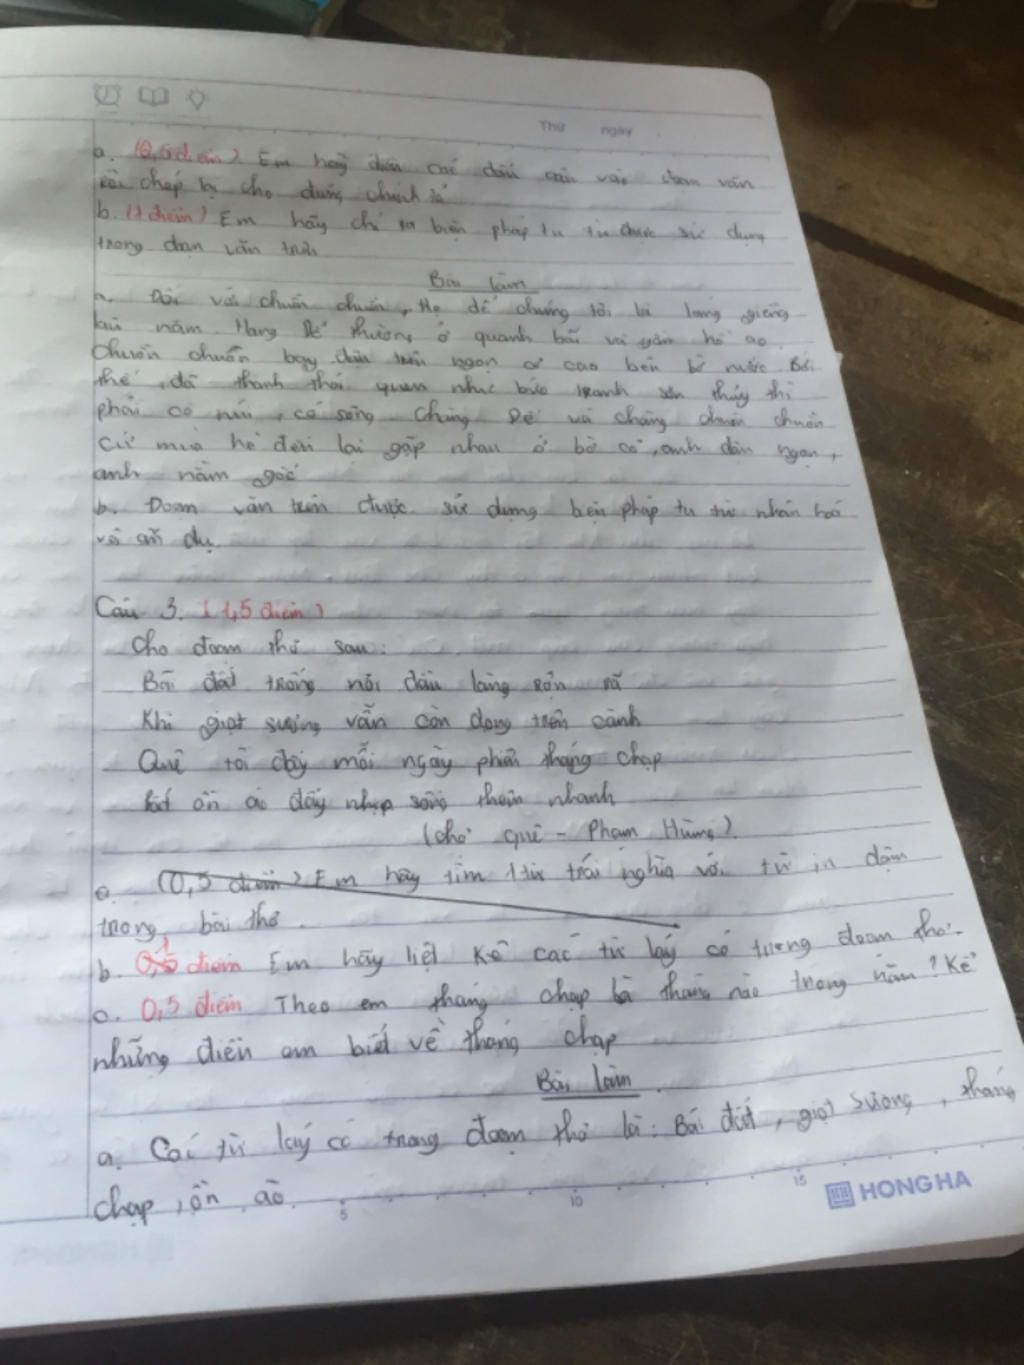 Thứ ngày
a. (0,5 điểm) Em hãy điền các dấu câu vào đoạn văn
rồi chép lại cho đúng chính tả
b. (1 điểm) Em hãy chỉ ra biện pháp tu từ được sử dụng
trong đoạn văn trên
Bài làm
a. Đối với chuồn chuồn, Họ dế chúng tôi là láng giềng
lâu năm. Hang Dế thường ở quanh bãi và gần hồ ao.
Chuồn chuồn bay đậu trên ngọn cỏ cao bên bờ nước. Bởi
thế, đã thành thói quen như bức tranh sơn thủy thì
phải có núi, có sông. Chàng Dế và chàng chuồn chuồn
cứ mùa hè đến lại gặp nhau ở bờ cỏ, anh đậu ngọn,
anh nằm gốc
b. Đoạn văn trên được sử dụng biện pháp tu từ nhân hoá
và ẩn dụ.
Câu 3. (1,5 điểm)
Cho đoạn thơ sau:
Bãi đất trống nơi đầu làng rộn rã
Khi giọt sương vẫn còn đọng trên cành
Quê tôi đấy mỗi ngày phiên tháng chạp
ồn ào đẩy nhịp sống thêm nhanh
(chợ quê - Phạm Hùng).
a. (0,5 điểm) Em hãy tìm 1 từ trái nghĩa với từ in đậm
trong bài thơ.
b. 1 điểm Em hãy liệt kê các từ láy có trong đoạn thơ.
c. 0,5 điểm Theo em tháng chạp là tháng nào trong năm? Kể
những điều em biết về tháng chạp
Bài làm
a. Các từ láy có trong đoạn thơ là: Bãi đất, giọt sương, tháng
chạp, ồn ào.
5 10 15 HONG HA